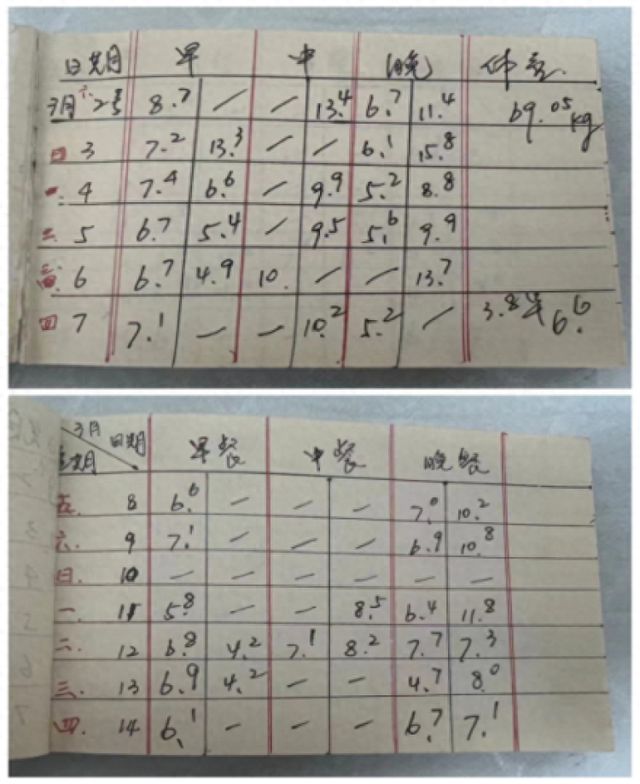 日期 早 中 晚 体重
3月 六 2号 8.7 / / 13.4 6.7 11.4 69.05 kg
日 3 7.2 13.3 / / 6.1 15.8
一 4 7.4 6.6 / 9.9 5.2 8.8
二 5 6.7 5.4 / 9.5 5.6 9.9
三 6 6.7 4.9 10. / / 13.7
四 7 7.1 / / 10.2 5.2 / 3.8 6.6
3月 日期 早餐 中餐 晚餐
星期
五. 8 6.6 — — — 7.0 10.2
六. 9 7.1 — — — 6.9 10.8
日. 10 — — — — — —
一. 11 5.8 — — 8.5 6.4 11.8
二. 12 6.8 4.2 7.1 8.2 7.7 7.3
三. 13 6.9 4.2 — — 4.7 8.0
四. 14 6.1 — — — 6.7 7.1